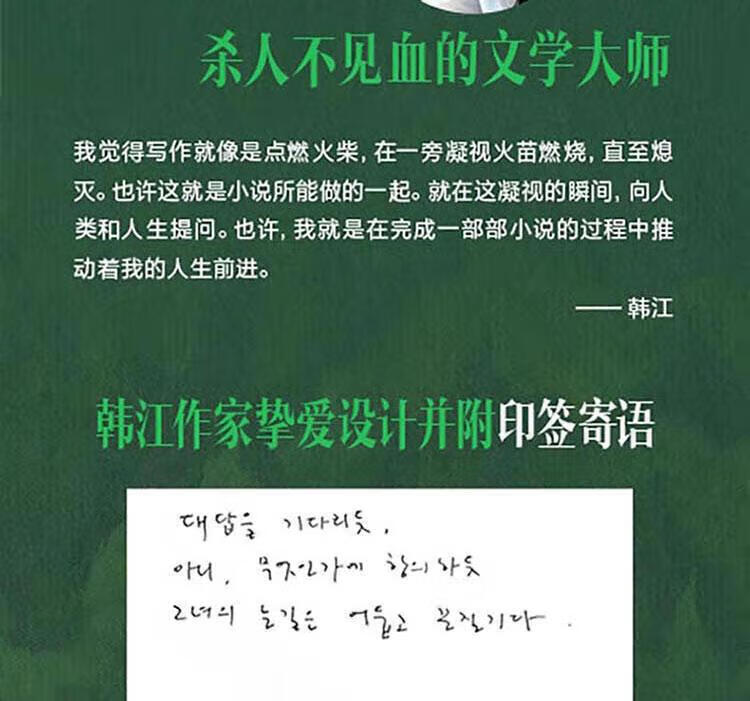 杀人不见血的文学大师
我觉得写作就像是点燃火柴，在一旁凝视火苗燃烧，直至熄
灭。也许这就是小说所能做的一起。就在这凝视的瞬间，向人
类和人生提问。也许，我就是在完成一部部小说的过程中推
动着我的人生前进。
—— 韩江
韩江作家挚爱设计并附印签寄语
대답을 기다리듯,
아니, 무엇인가에 항의하듯
그녀의 눈길은 어둡고 끈질기다.